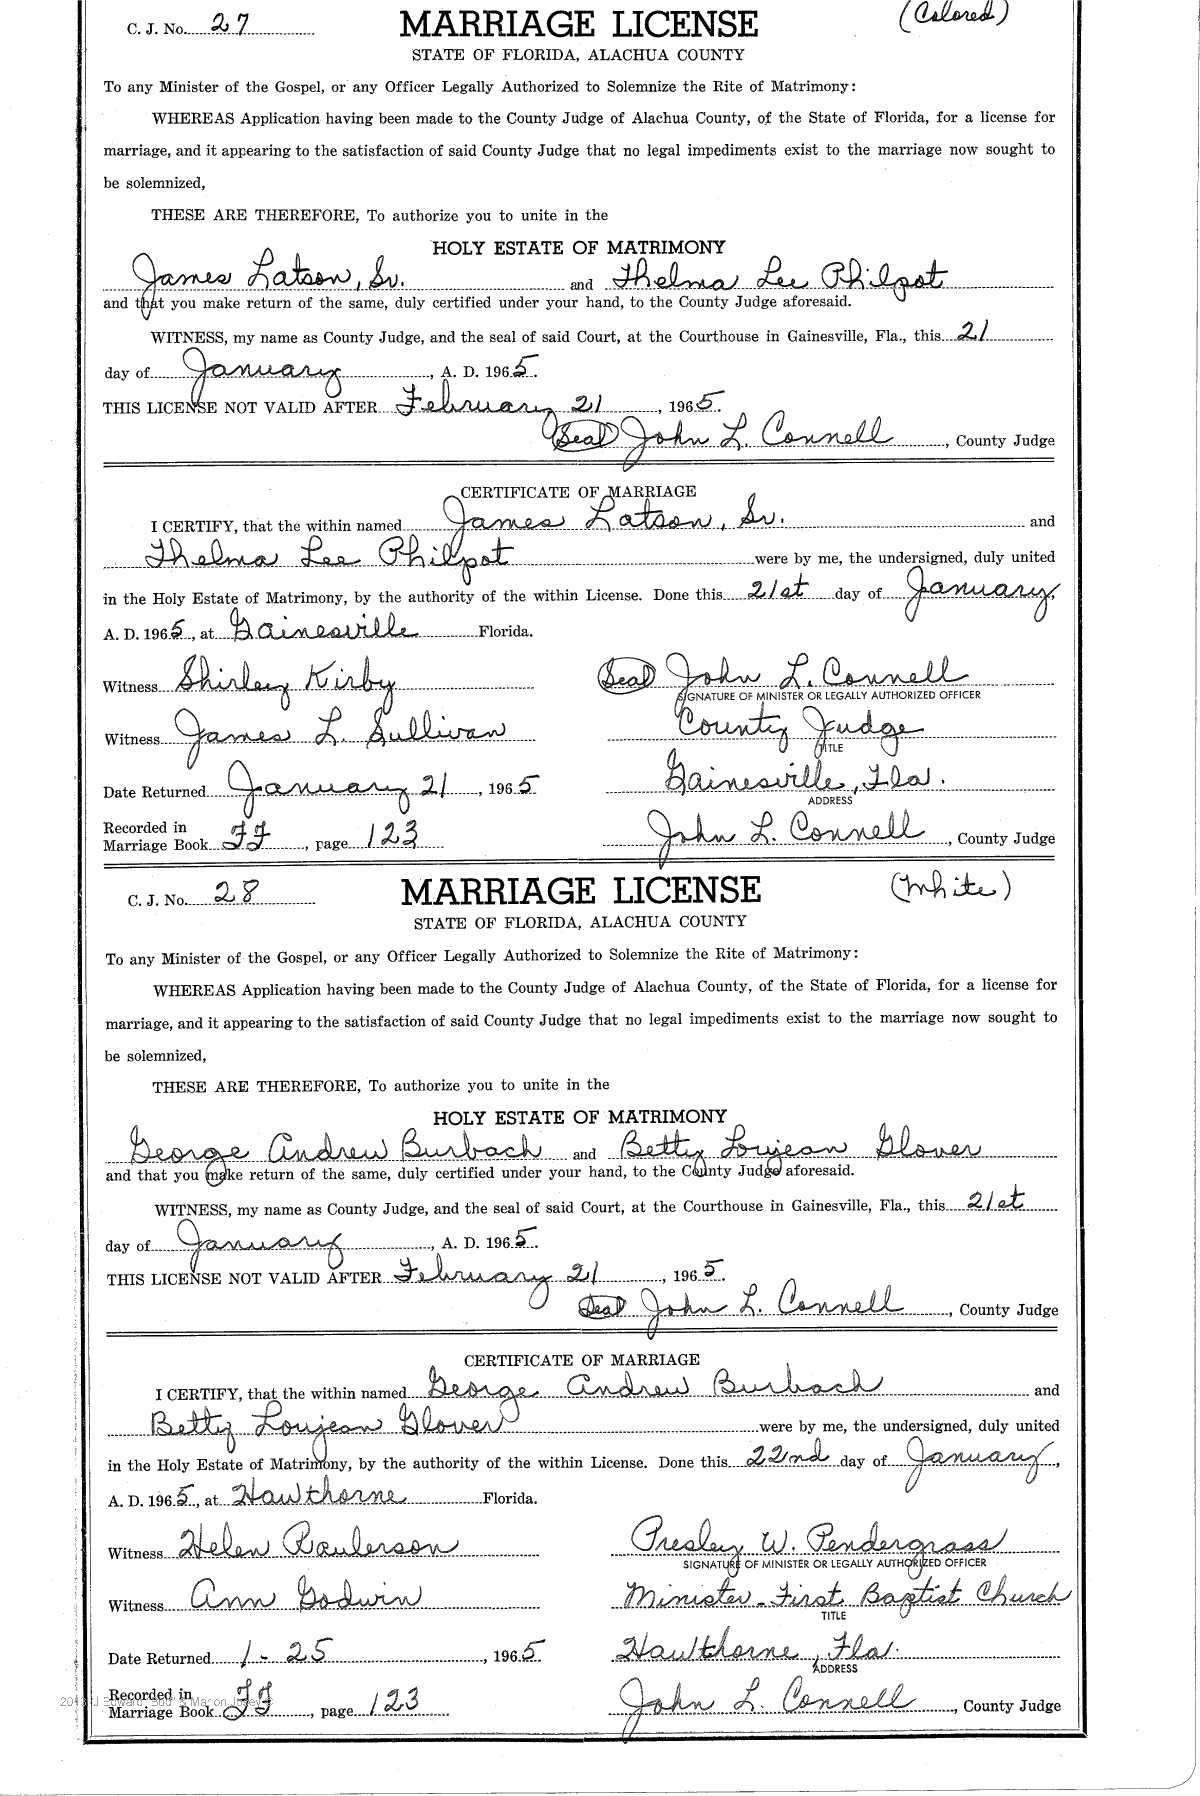 C. J. No. 27 MARRIAGE LICENSE (Colored)
STATE OF FLORIDA, ALACHUA COUNTY
To any Minister of the Gospel, or any Officer Legally Authorized to Solemnize the Rite of Matrimony:
WHEREAS Application having been made to the County Judge of Alachua County, of the State of Florida, for a license for
marriage, and it appearing to the satisfaction of said County Judge that no legal impediments exist to the marriage now sought to
be solemnized,
THESE ARE THEREFORE, To authorize you to unite in the
HOLY ESTATE OF MATRIMONY
James Latson, Sr. and Thelma Lee Philpot
and that you make return of the same, duly certified under your hand, to the County Judge aforesaid.
WITNESS, my name as County Judge, and the seal of said Court, at the Courthouse in Gainesville, Fla., this 21
day of January, A. D. 1965.
THIS LICENSE NOT VALID AFTER February 21, 1965.
(Seal) John L. Connell, County Judge
CERTIFICATE OF MARRIAGE
I CERTIFY, that the within named James Latson, Sr. and
Thelma Lee Philpot were by me, the undersigned, duly united
in the Holy Estate of Matrimony, by the authority of the within License. Done this 21st day of January,
A. D. 1965, at Gainesville Florida.
Witness Shirley Kirby (Seal) John L. Connell
SIGNATURE OF MINISTER OR LEGALLY AUTHORIZED OFFICER
Witness James L. Sullivan County Judge
TITLE
Date Returned January 21, 1965 Gainesville, Fla.
ADDRESS
Recorded in
Marriage Book FF, page 123 John L. Connell, County Judge
C. J. No. 28 MARRIAGE LICENSE (White)
STATE OF FLORIDA, ALACHUA COUNTY
To any Minister of the Gospel, or any Officer Legally Authorized to Solemnize the Rite of Matrimony:
WHEREAS Application having been made to the County Judge of Alachua County, of the State of Florida, for a license for
marriage, and it appearing to the satisfaction of said County Judge that no legal impediments exist to the marriage now sought to
be solemnized,
THESE ARE THEREFORE, To authorize you to unite in the
HOLY ESTATE OF MATRIMONY
George Andrew Burbach and Betty Loujean Glover
and that you make return of the same, duly certified under your hand, to the County Judge aforesaid.
WITNESS, my name as County Judge, and the seal of said Court, at the Courthouse in Gainesville, Fla., this 21st
day of January, A. D. 1965.
THIS LICENSE NOT VALID AFTER February 21, 1965.
(Seal) John L. Connell, County Judge
CERTIFICATE OF MARRIAGE
I CERTIFY, that the within named George Andrew Burbach and
Betty Loujean Glover were by me, the undersigned, duly united
in the Holy Estate of Matrimony, by the authority of the within License. Done this 22nd day of January,
A. D. 1965, at Hawthorne Florida.
Witness Helen Raulerson Presley W. Pendergrass
SIGNATURE OF MINISTER OR LEGALLY AUTHORIZED OFFICER
Witness Ann Godwin Minister - First Baptist Church
TITLE
Date Returned 1 - 25, 1965 Hawthorne, Fla.
ADDRESS
Recorded in
Marriage Book FF, page 123 John L. Connell, County Judge